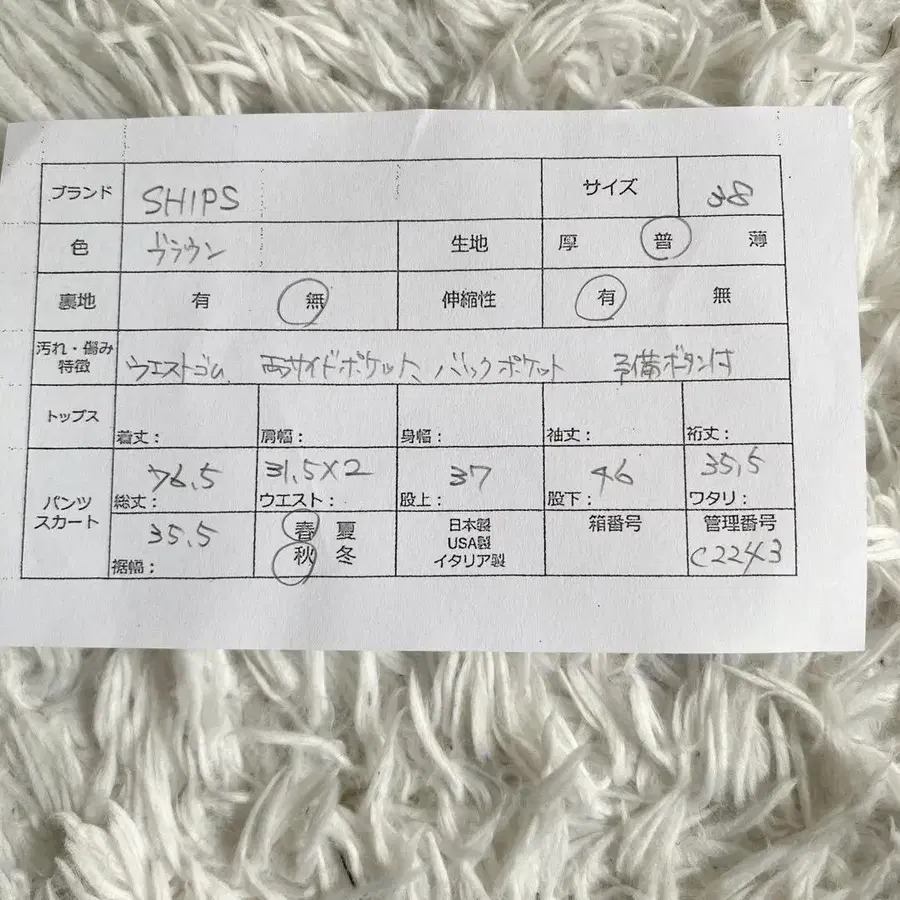 ブランド SHIPS サイズ 38
色 ブラウン 生地 厚 普 薄
裏地 有 無 伸縮性 有 無
汚れ・傷み
特徴 ウエストゴム、両サイドポケット、バックポケット 予備ボタン付
トップス 着丈: 肩幅: 身幅: 袖丈: 裄丈:
76.5 31.5×2 37 46 35.5
パンツ
スカート
総丈: ウエスト: 股上: 股下: ワタリ:
35.5
裾幅:
春 夏
秋 冬
日本製
USA製
イタリア製
箱番号
管理番号
C2243